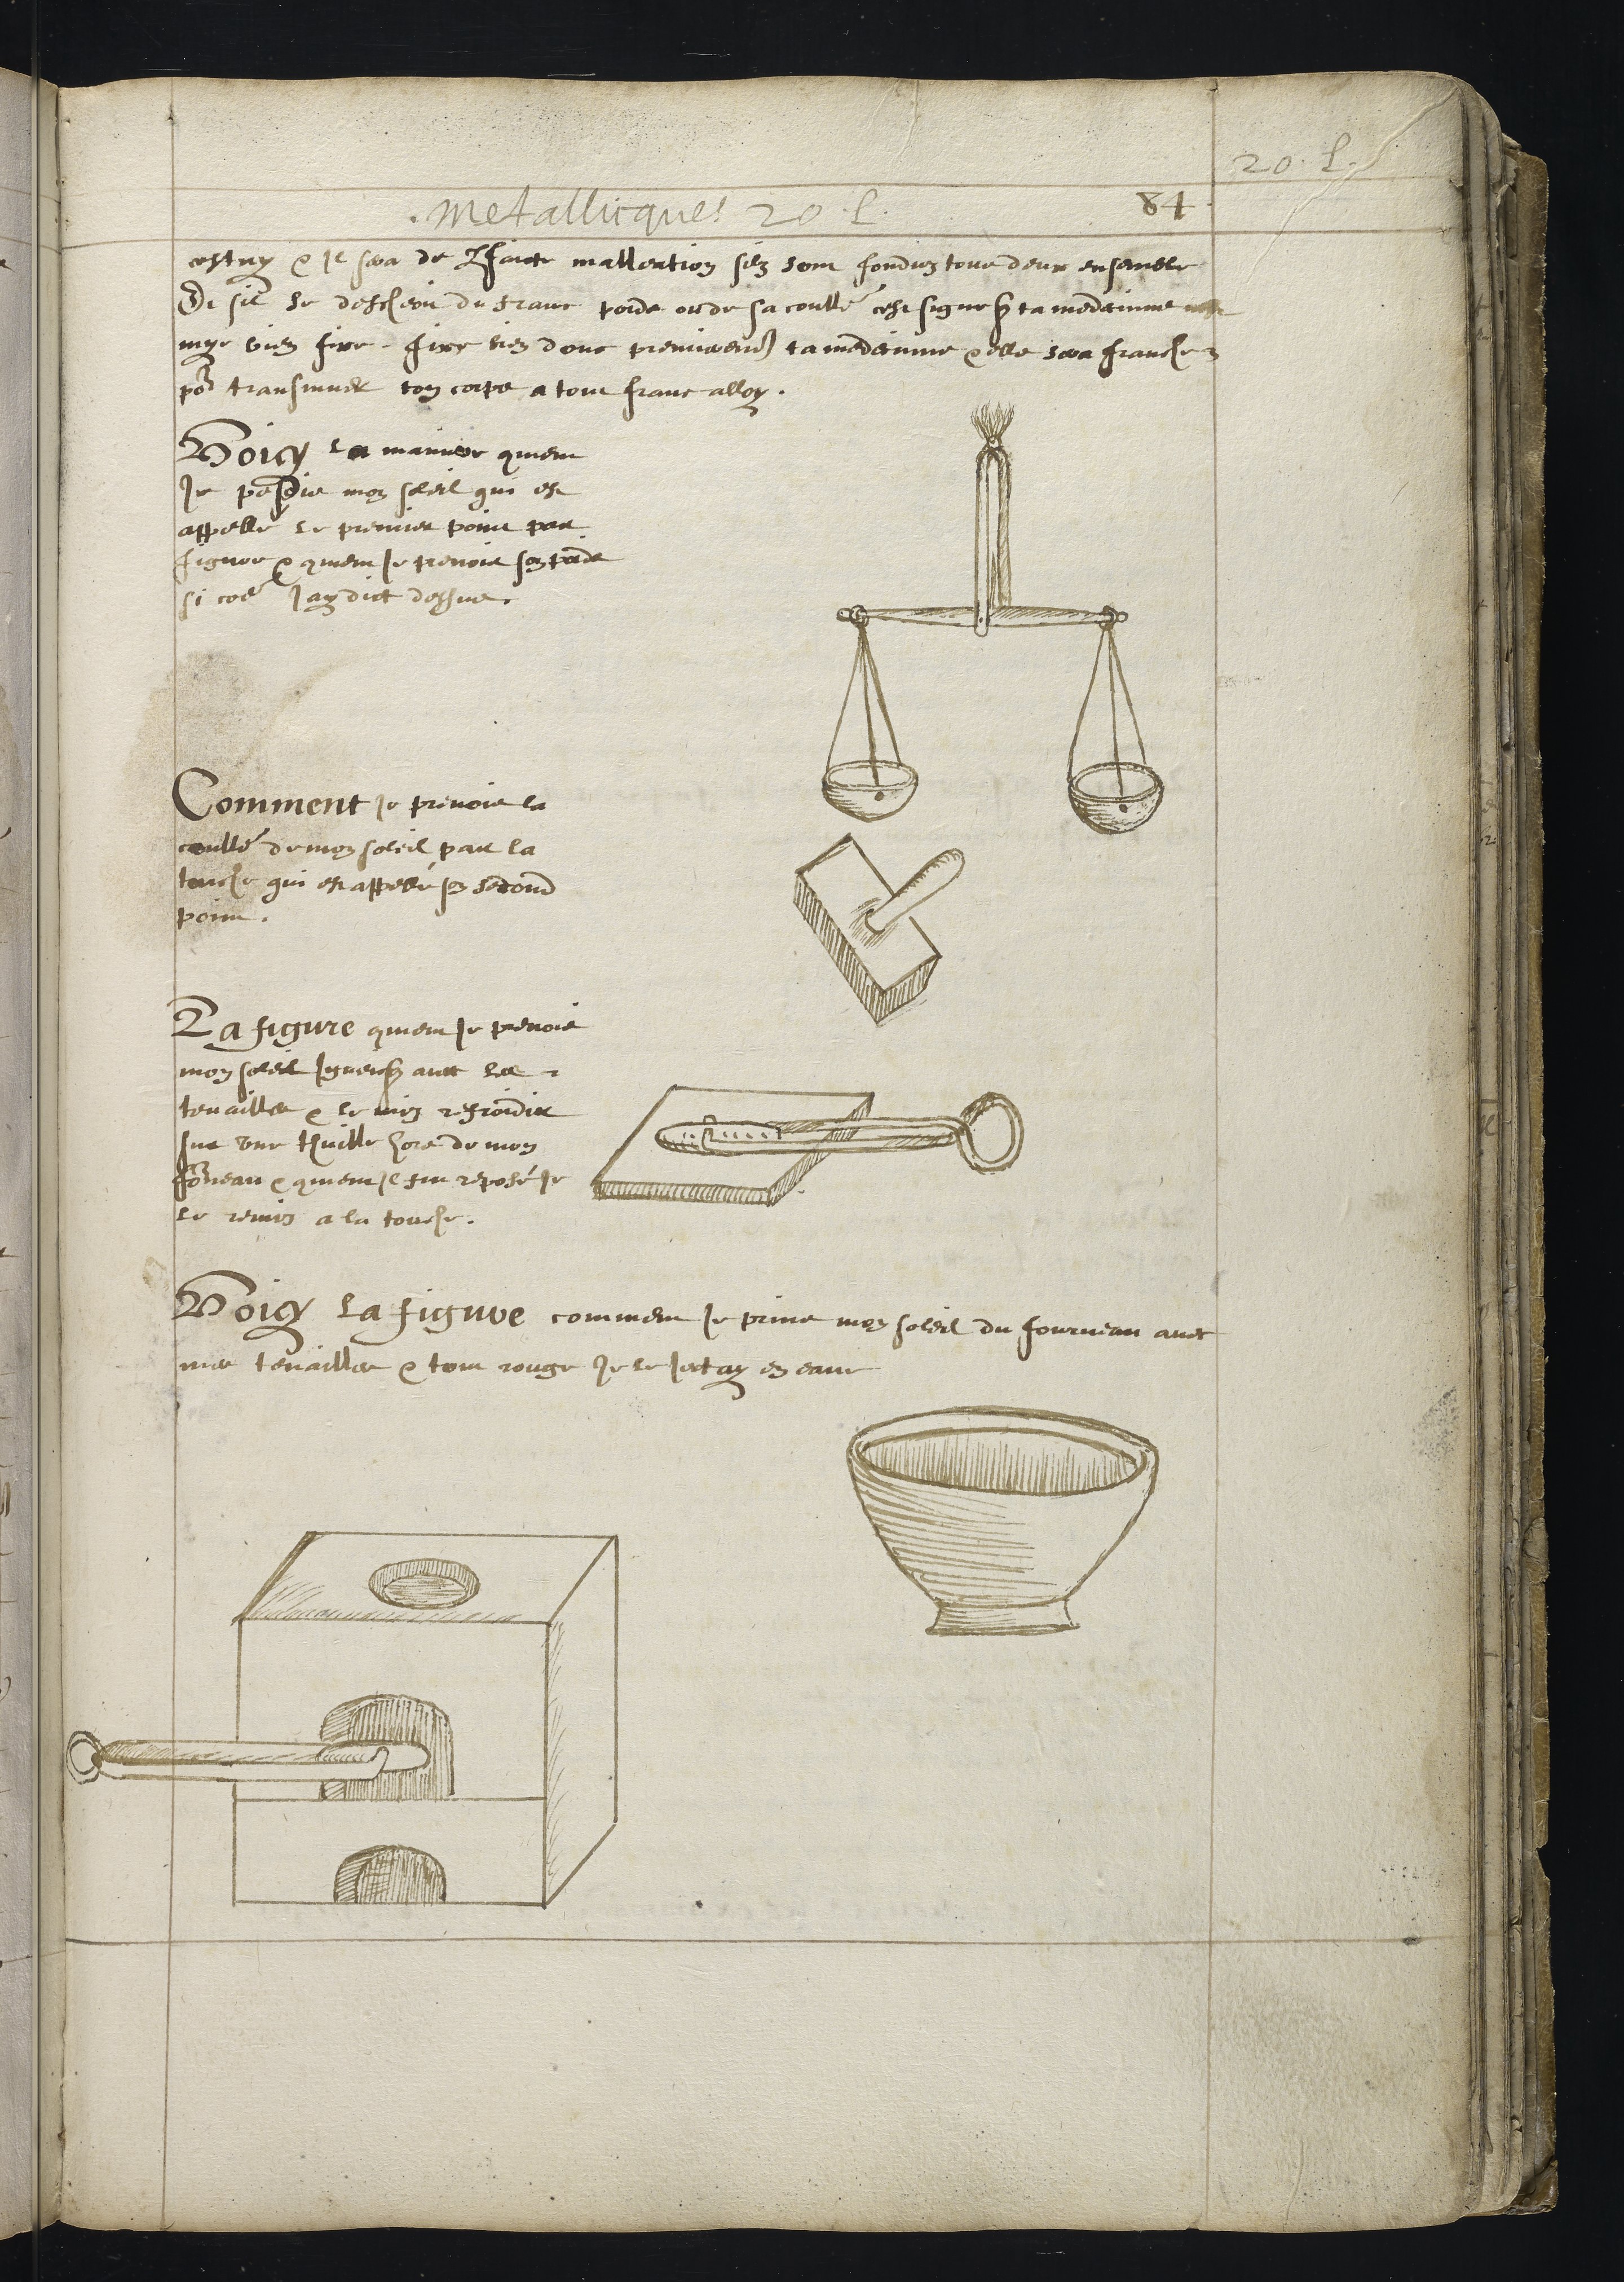 20. l.
. Metallicques 20 . l.
84
cestuy & Il sera de pfaicte malleation silz sont fonduz tous deux ensemble
Et sil se deschent du franc poids ou de sa coulle' cest signe q ta medecinne nest
mye bien fixe. fixe bien donc premierem ta medecinne & elle sera franche
po transmuer ton corps a tout franc alloy.
Voicy la maniere quent
Je my soleil qui est
appelle' le premier point par
figure & quent Je prenois son poids
si coe Jay dict dessus.
Comment Je prenois la
coulle' de mon soleil par la
touche qui est appelle' second
point.
La figure quent Je prenois
mon soleil avec les
tenailles & le mis refroidir
sur une thuille hors de mon
foneau & quent Il fut reposé Je
le remis a la touche.
Voicy la figure comment Je prins mon soleil du fourneau avec
mes tenailles & tout rouge Je le Jectay en eaue